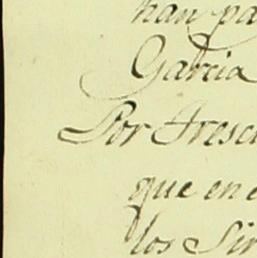 han pa
Garcia
Por Tresci
que en e
los Sir